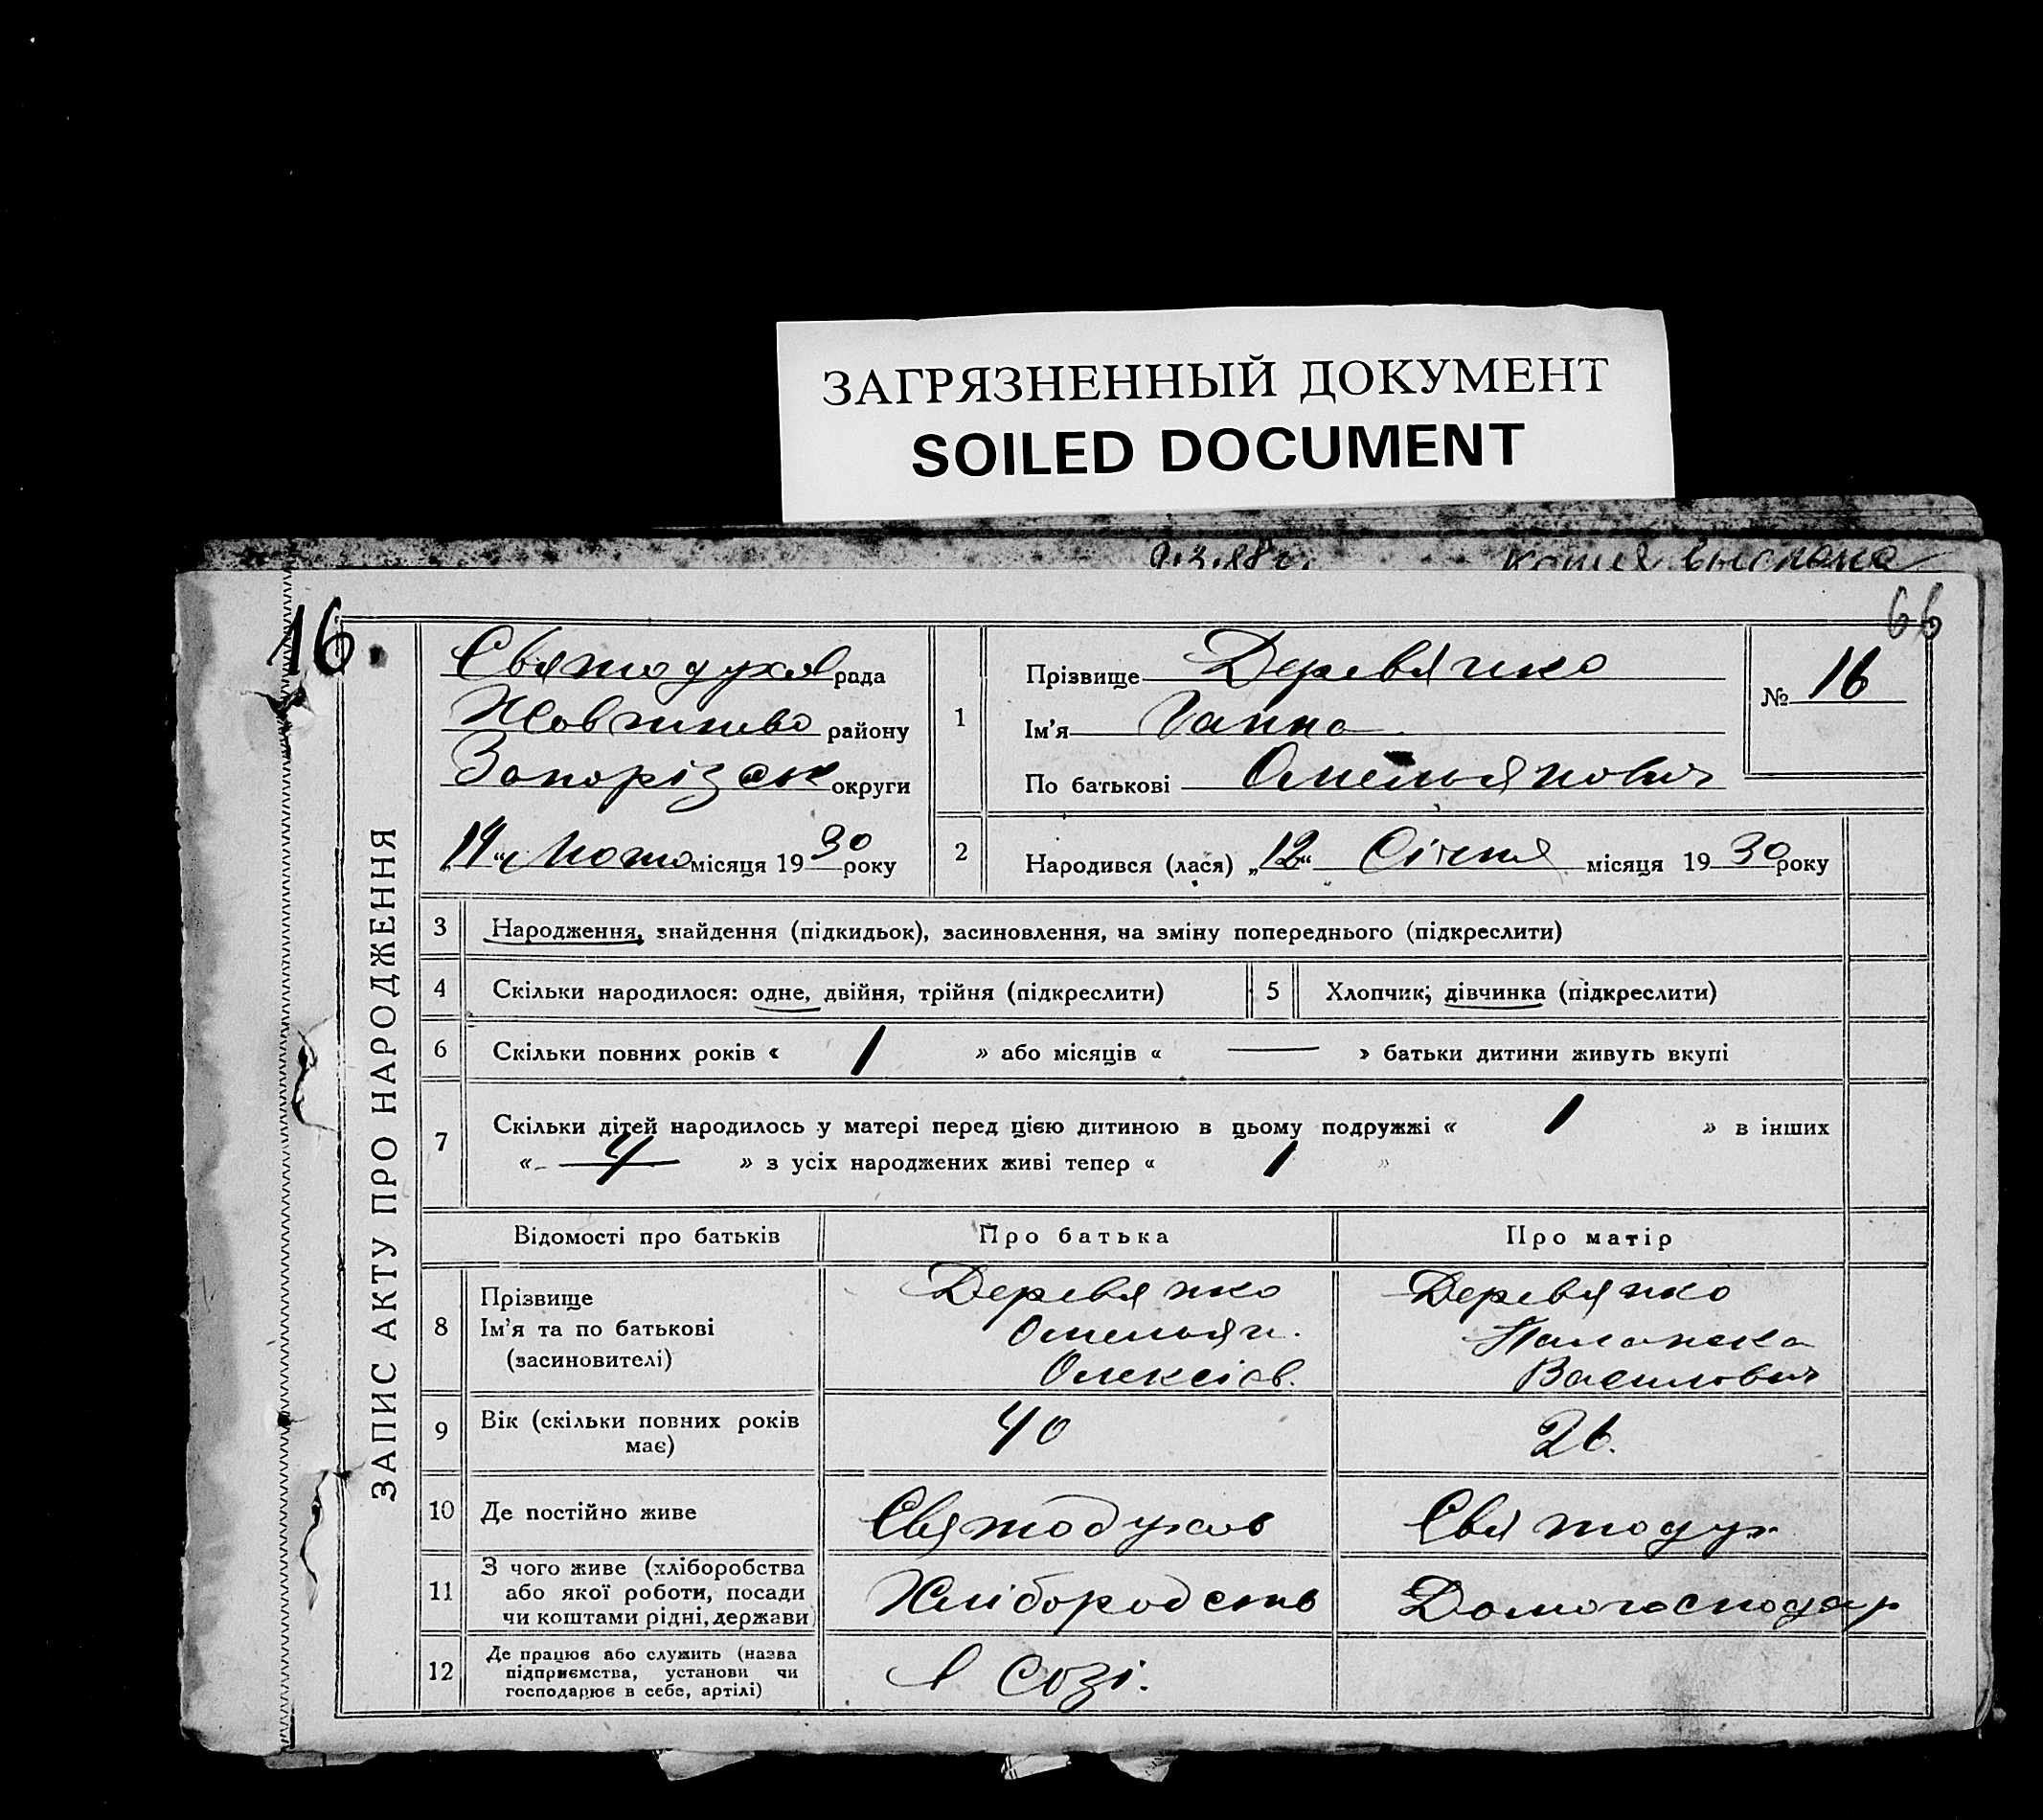 ЗАГРЯЗНЕННЫЙ ДОКУМЕНТ
SOILED DOCUMENT
копия выслана
66
16.
ЗАПИС АКТУ ПРО НАРОДЖЕННЯ
Святодухов рада
Жовтнево району
Запорізск округи
"14" Лютого місяця 1930 року
1
Прізвище Деревячко
Ім'я Ганна
По батькові Омельянович
№ 16
2
Народився (лася) „12“ Січня місяця 1930 року
3 Народження, знайдення (підкидьок), засиновлення, на зміну попереднього (підкреслити)
4 Скільки народилося: одне, двійня, трійня (підкреслити)
5 Хлопчик; дівчинка (підкреслити)
6 Скільки повних років « 1 » або місяців « — » батьки дитини живуть вкупі
7 Скільки дітей народилось у матері перед цією дитиною в цьому подружжі « 1 » в інших
« » з усіх народжених живі тепер « 1 »
Відомості про батьків Про батька Про матір
8 Прізвище
Ім'я та по батькові
(засиновителі)
Деревянко
Омельян.
Олексієв.
Деревянко
Палажка
Василович
9 Вік (скільки повних років
має)
40
26.
10 Де постійно живе Святодухов Святодух
11 З чого живе (хліборобства
або якої роботи, посади
чи коштами рідні, держави)
Хліборобств
Домогосподар
12 Де працює або служить (назва
підприємства, установи чи
господарює в себе, артілі)
в Созі.